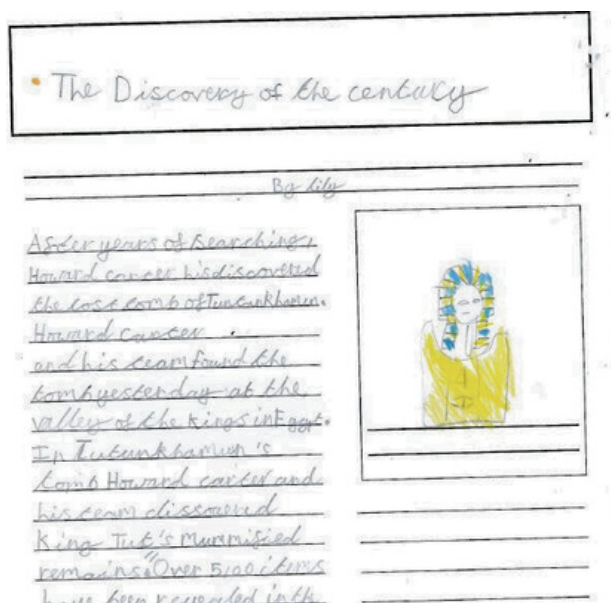 The Discovery of the century
By lily
After years of searching,
Howard carter hisdiscovered
the lost tomb of Tuntankhamun.
Howard carter
and his team found the
tomb yesterday at the
valley of the kings in Egypt.
In Tutunkhamun's
tomb Howard carter and
his team dissovered
King Tut's mummified
remains "Over 5,100 items
have been revealed in th